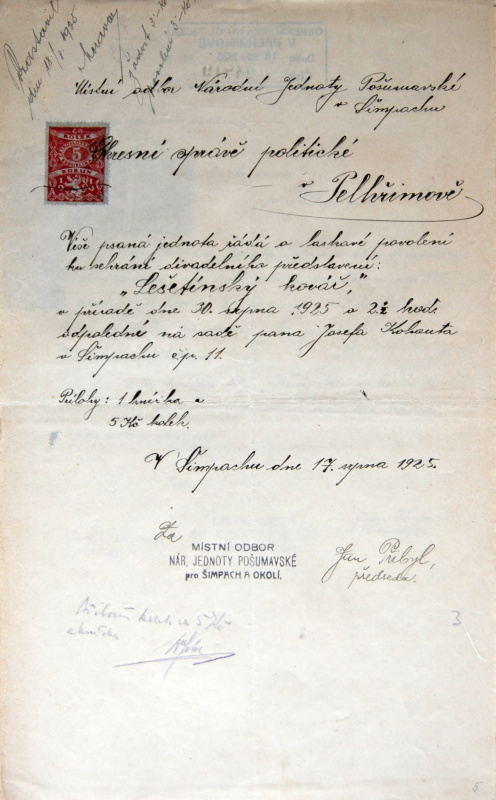 Místní odbor Národní Jednoty Pošumavské
v Šimpachu
ČS
KOLEK
5
KORUN
Okresní správě politické
v Pelhřimově
Výše psaná jednota žádá o laskavé povolení
ku sehrání divadelního představení:
„Lešetínský kovář,"
v přírodě dne 30. srpna 1925 o 2½ hod.
odpoledne na sadě pana Josefa Kohouta
v Šimpachu čp. 11.
Přílohy: 1 knížka a
5 Kč kolek.
V Šimpachu dne 17. srpna 1925.
Za
MÍSTNÍ ODBOR
NÁR. JEDNOTY POŠUMAVSKÉ
pro ŠIMPACH A OKOLÍ.
Jan Přibyl,
předseda.
kolek za 5 Kč
3
5